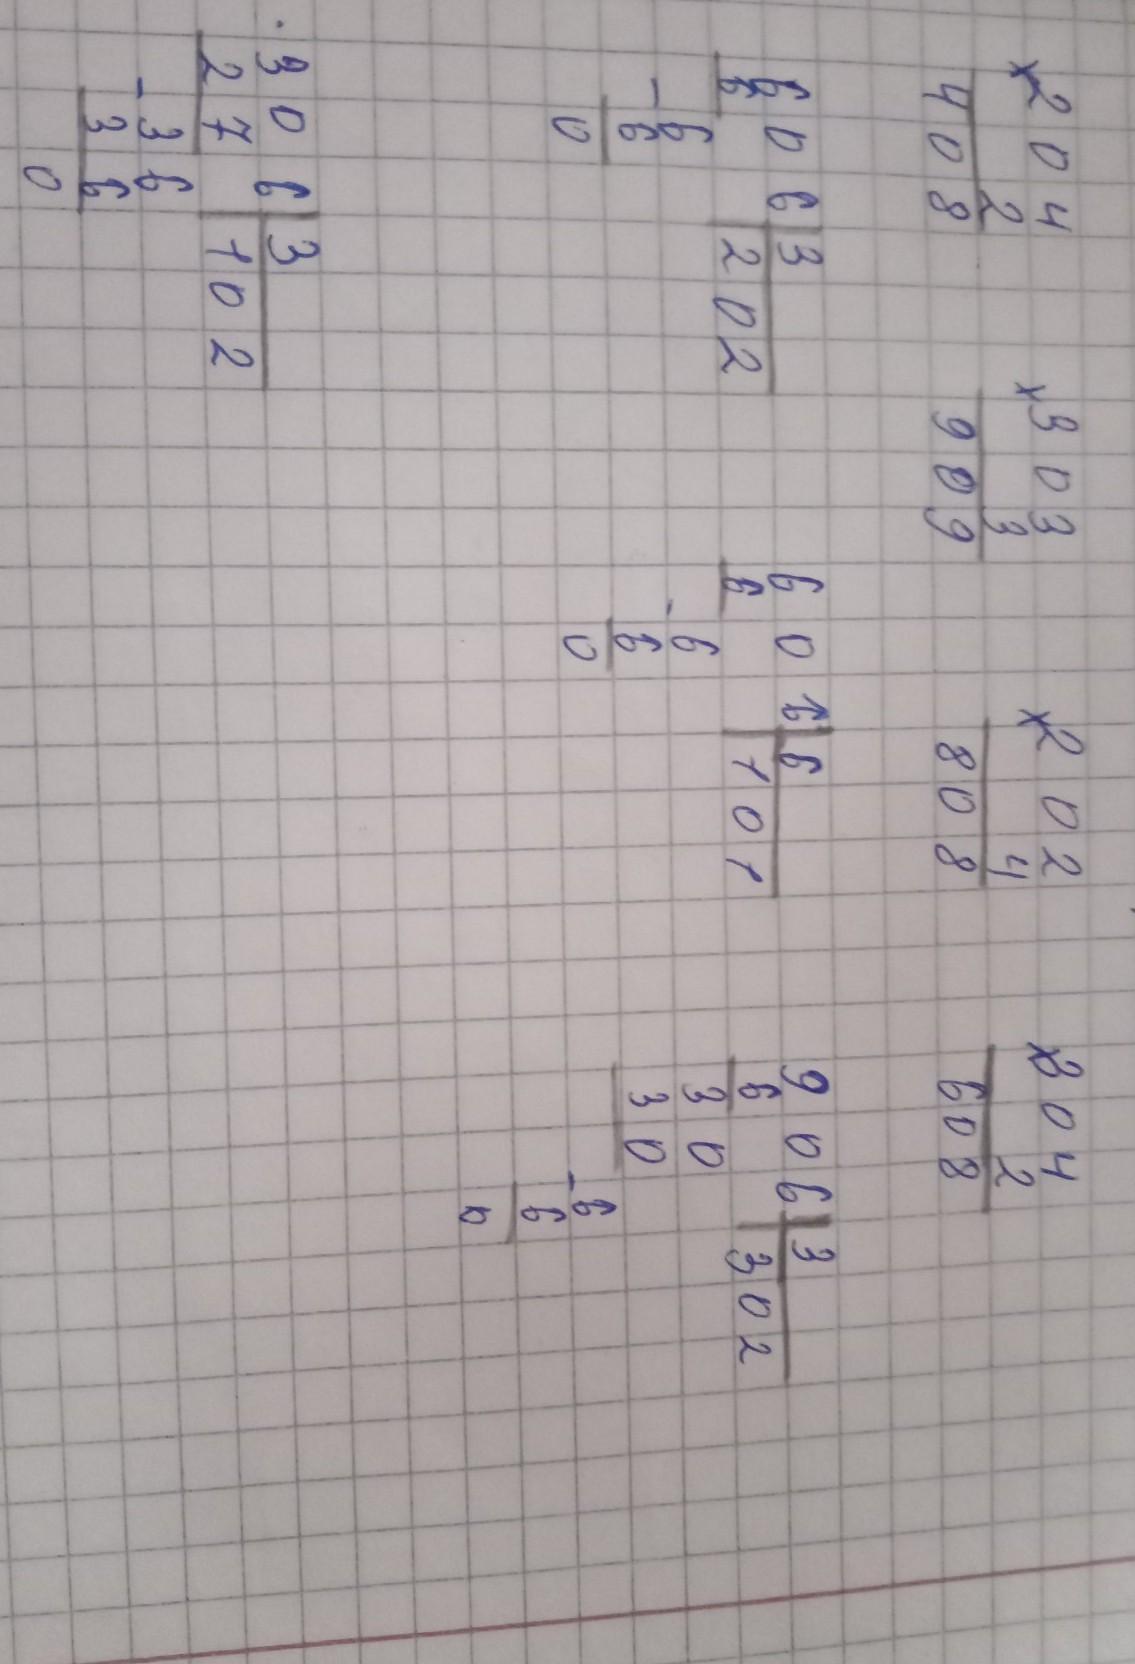 ×204 ×303 ×202 ×304
2 3 4 2
408 909 808 608
606 3 606 6 906 3
6 202 6 101 6 302
-6 -6 30
6 6 30
0 0 -6
6
0
306 3
27 102
-36
36
0